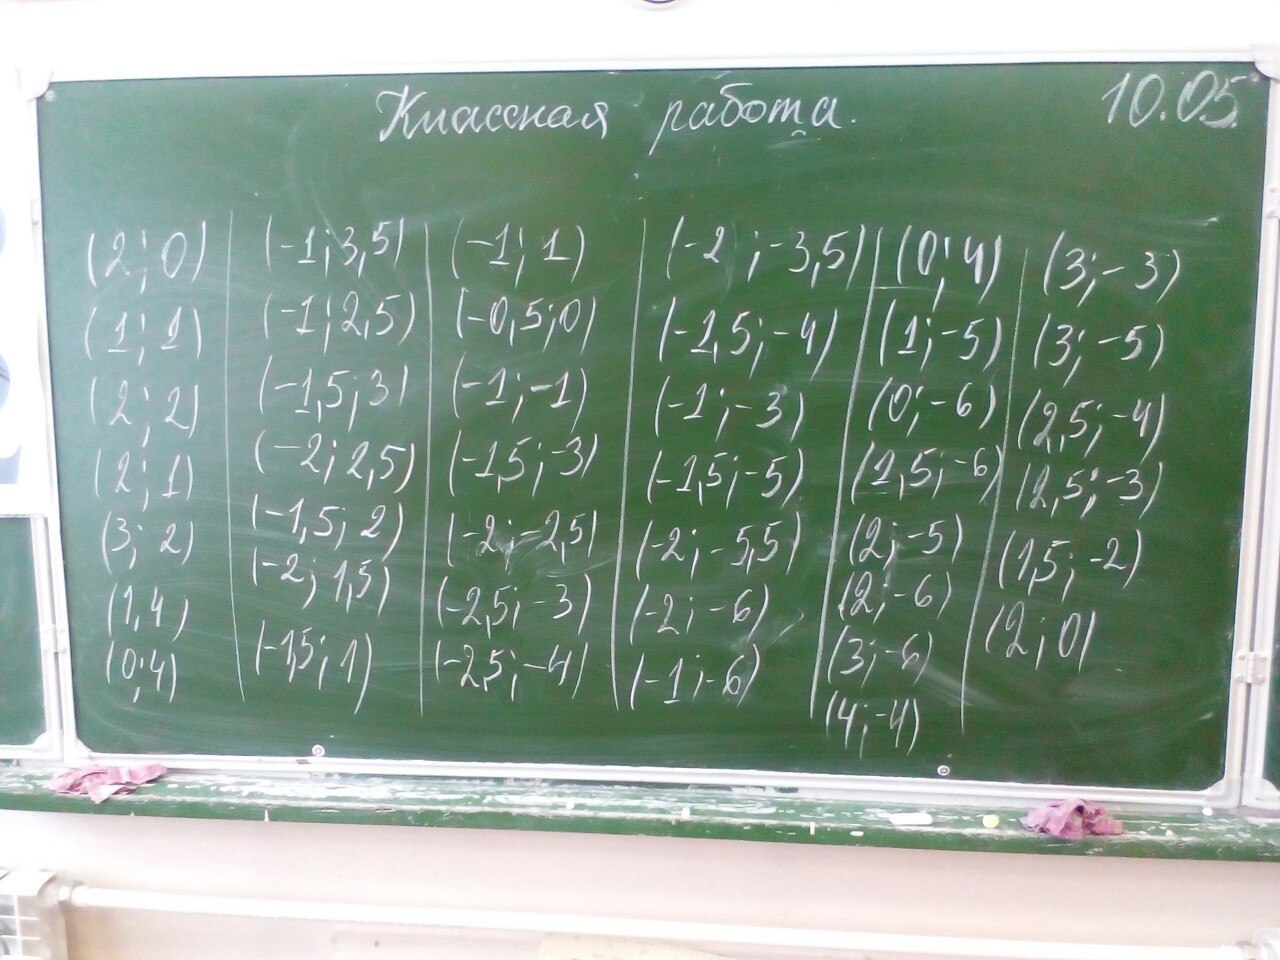 Классная работа. 10.05.
(2; 0)
(1; 1)
(2; 2)
(2; 1)
(3; 2)
(1,4)
(0;4)
(-1;3,5)
(-1;2,5)
(-1,5;3)
(-2; 2,5)
(-1,5; 2)
(-2; 1,5)
(-1,5; 1)
(-1; 1)
(-0,5;0)
(-1;-1)
(-1,5;-3)
(-2;-2,5)
(-2,5;-3)
(-2,5;-4)
(-2;-3,5)
(-1,5;-4)
(-1;-3)
(-1,5;-5)
(-2;-5,5)
(-2;-6)
(-1;-6)
(0;4)
(1;-5)
(0;-6)
(1,5;-6)
(2;-5)
(2;-6)
(3;-6)
(4;-4)
(3;-3)
(3;-5)
(2,5;-4)
(2,5;-3)
(1,5;-2)
(2;0)